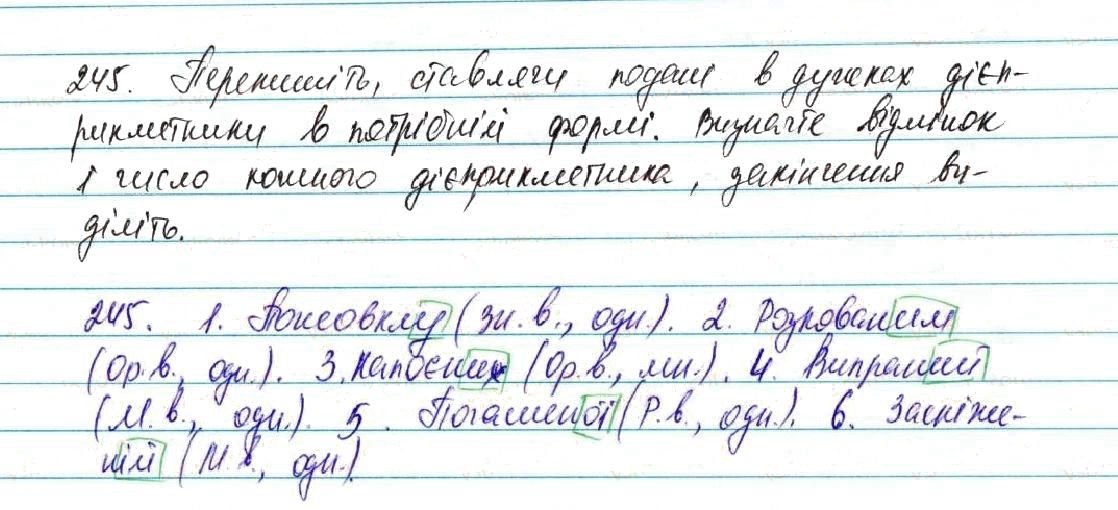 245. Перепишіть, ставлячи подані в дужках дієп-
рикметники в потрібній формі. Визначте відмінок
і число кожного дієприкметника, закінчення ви-
діліть.
245. 1. Пожовклу (Зн. в., одн.). 2. Розкованим
(Ор. в., одн.). 3. Напоєних (Ор. в., мн.). 4. Випраний
(М. в., одн.). 5. Погашеної (Р. в., одн.). 6. Засніже-
ній (М. в., одн.)